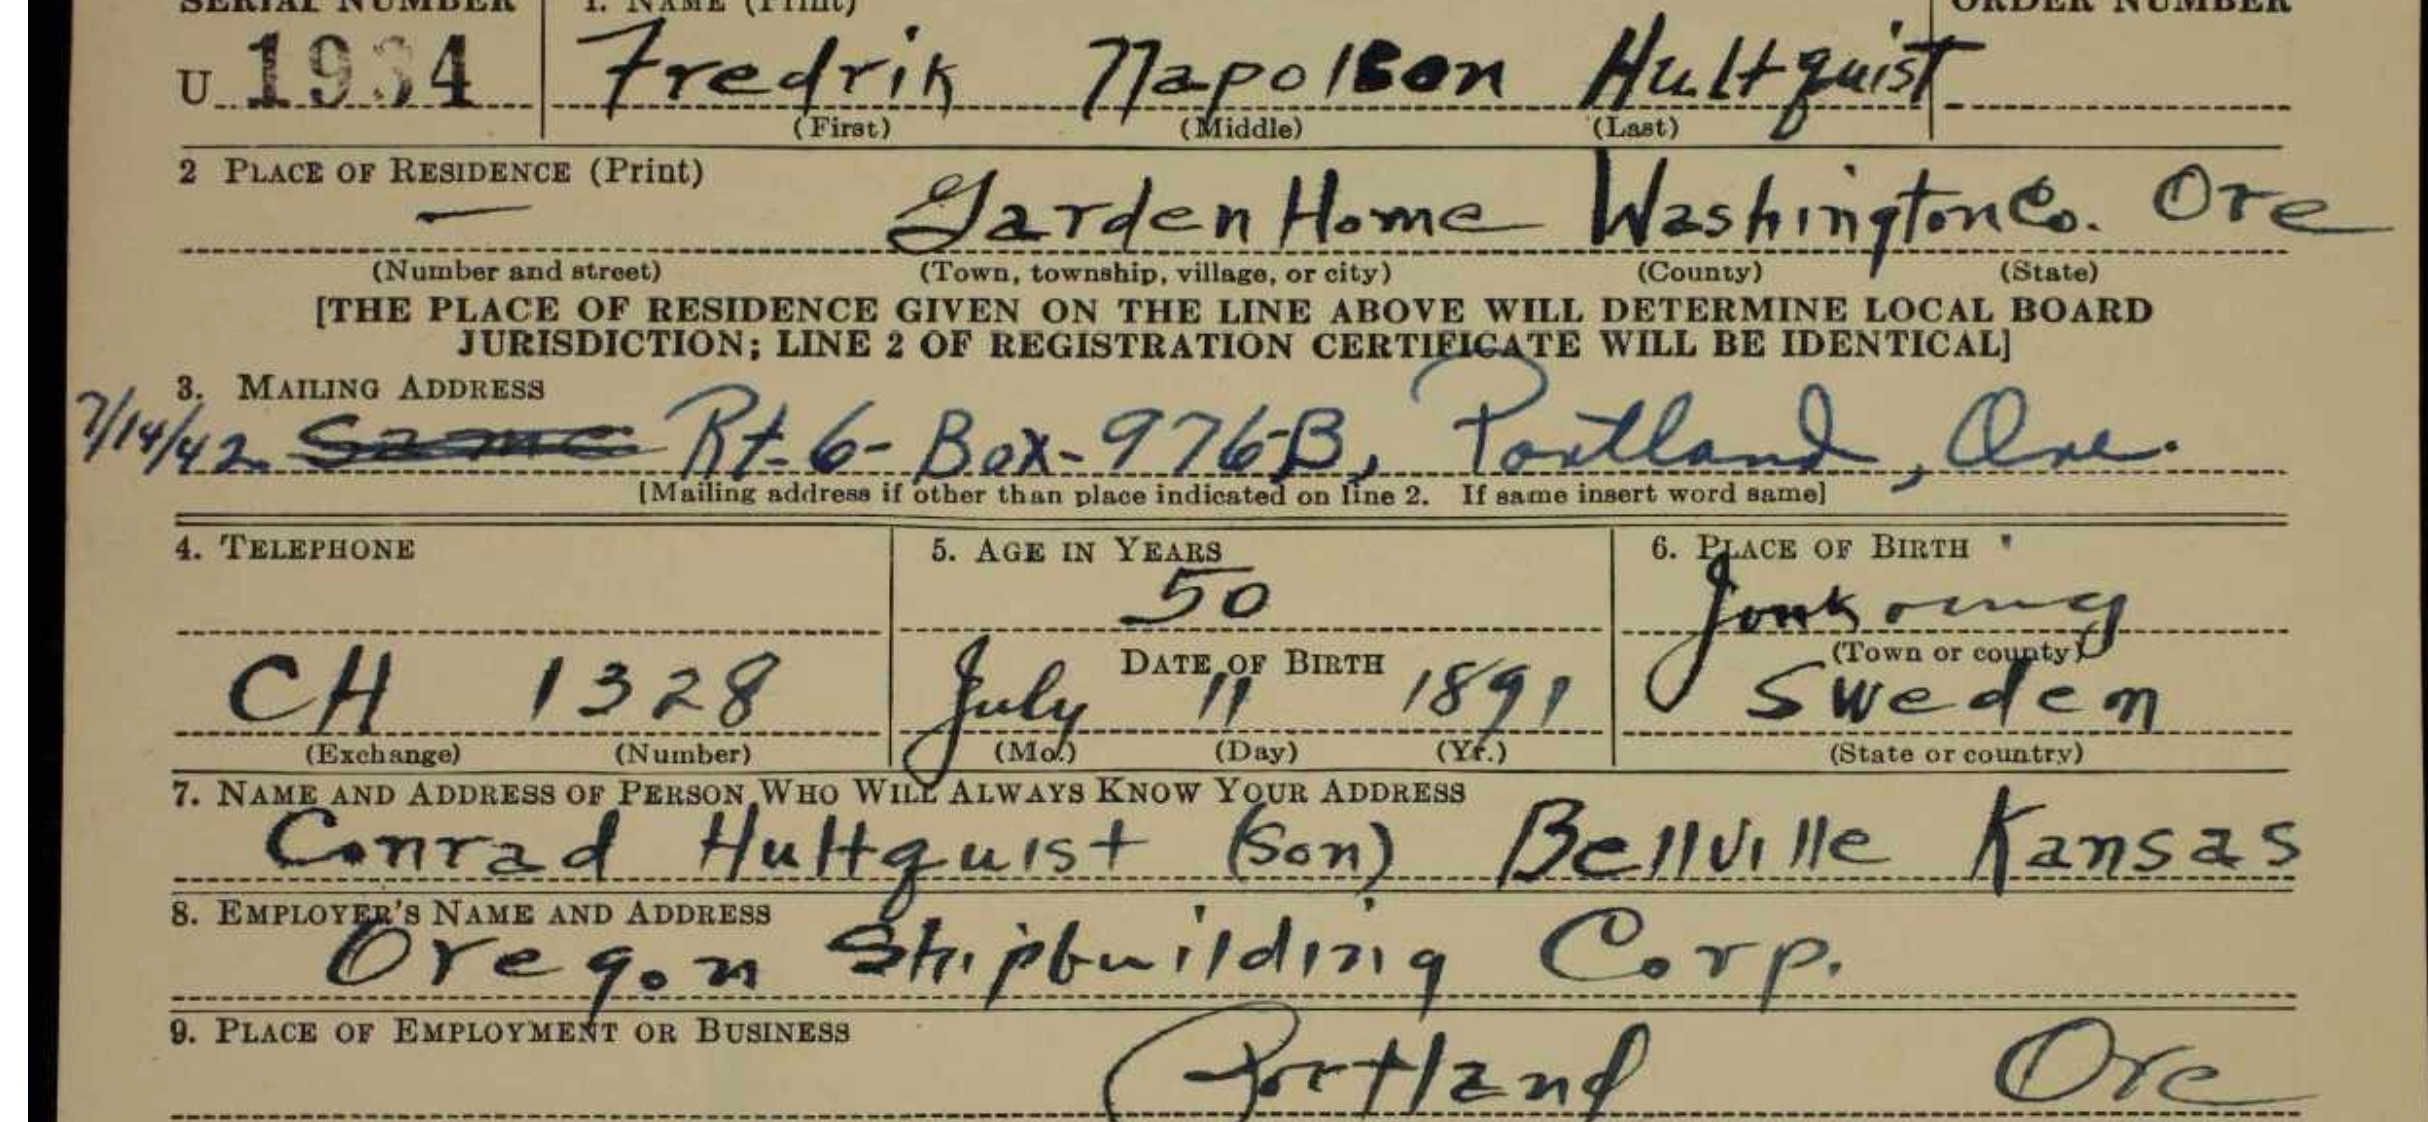 SERIAL NUMBER 1. NAME (Print) ORDER NUMBER
U 1934 Fredrik Napoleon Hultquist
(First) (Middle) (Last)
2 PLACE OF RESIDENCE (Print)
— Garden Home Washington Co. Ore
(Number and street) (Town, township, village, or city) (County) (State)
[THE PLACE OF RESIDENCE GIVEN ON THE LINE ABOVE WILL DETERMINE LOCAL BOARD
JURISDICTION; LINE 2 OF REGISTRATION CERTIFICATE WILL BE IDENTICAL]
3. MAILING ADDRESS
7/14/42 Same Rt-6-Box-976-B, Portland, Ore.
[Mailing address if other than place indicated on line 2. If same insert word same]
4. TELEPHONE 5. AGE IN YEARS 6. PLACE OF BIRTH
50
(Town or county)
DATE OF BIRTH
CH 1328 July 11 1891 Sweden
(Exchange) (Number) (Mo.) (Day) (Yr.) (State or country)
7. NAME AND ADDRESS OF PERSON WHO WILL ALWAYS KNOW YOUR ADDRESS
Conrad Hultquist (Son) Bellville Kansas
8. EMPLOYER'S NAME AND ADDRESS
Oregon Shipbuilding Corp.
9. PLACE OF EMPLOYMENT OR BUSINESS
Portland Ore